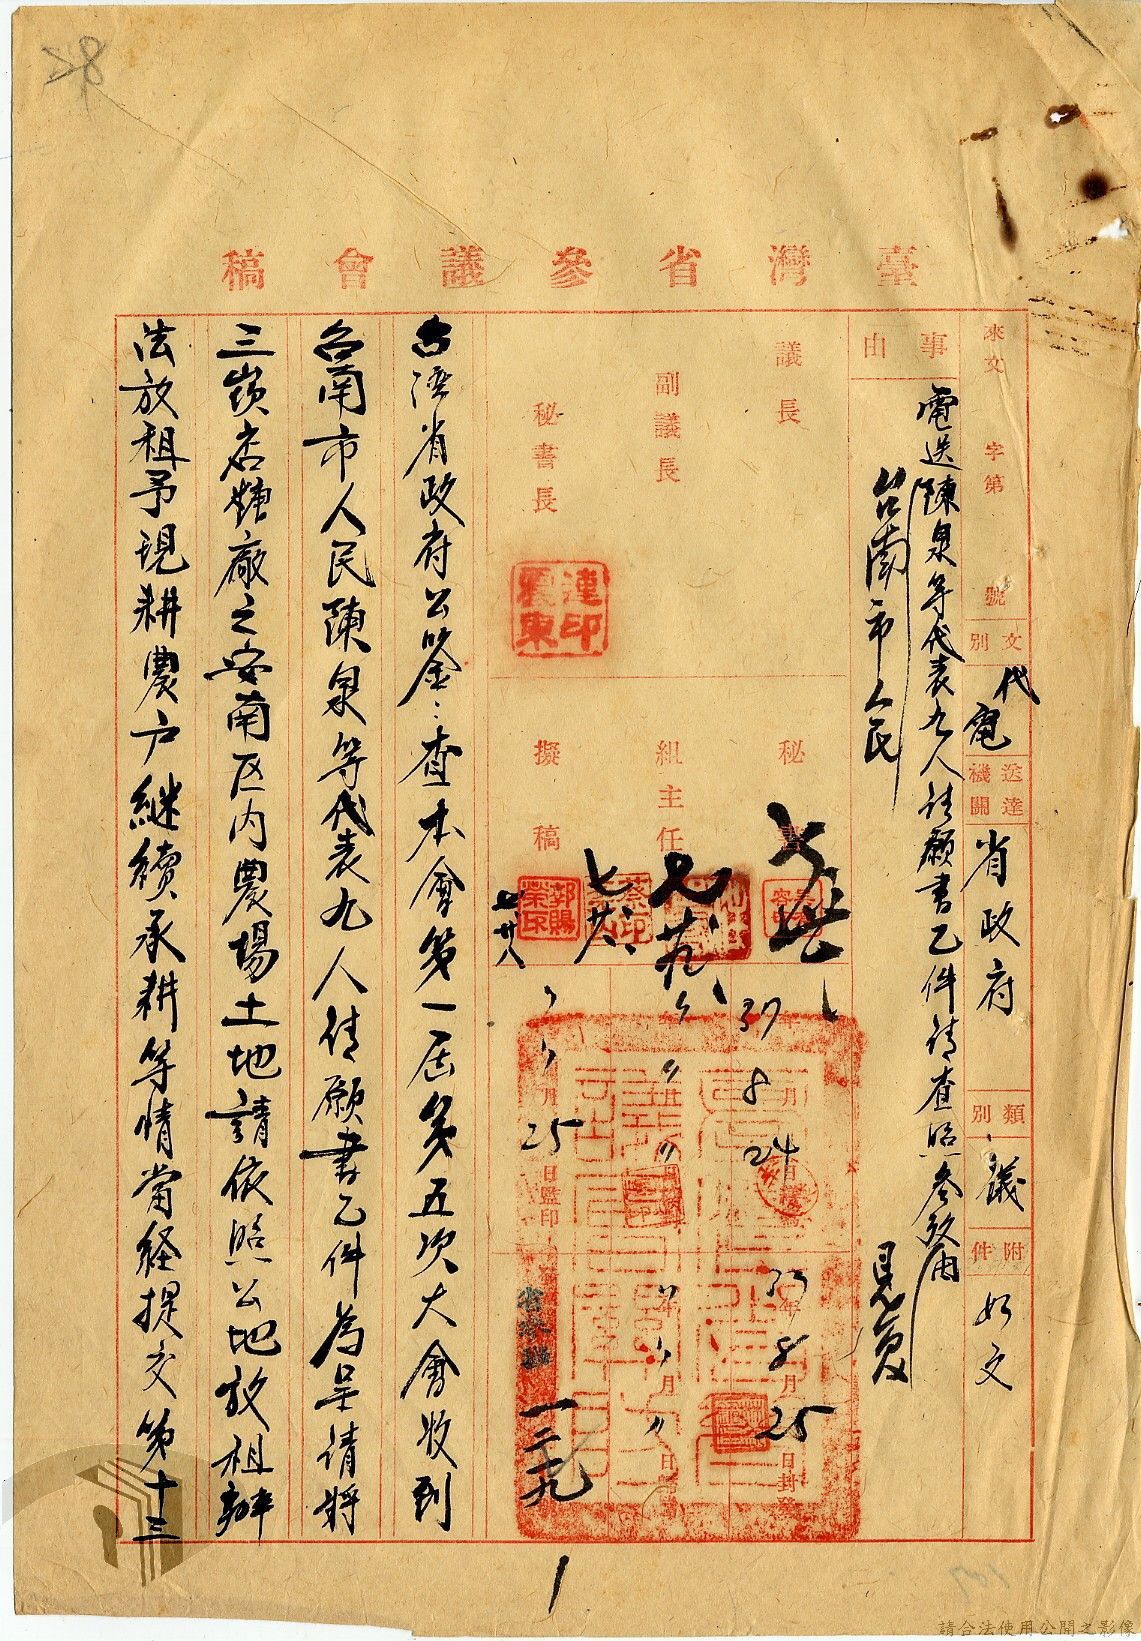 臺灣省參議會稿
來文 字第 號
文別 代電
送達機關 省政府
類別 議
附件 如文
事由
電送陳泉等代表九人請願書乙件請查照參攷由
台南市人民
議長
副議長
秘書長
連印震東
秘書
組主任
擬稿
郭賜榮印
七廿八
37年8月24日
37年8月25日封發
25日監印
一二九
台灣省政府公鑒:查本會第一屆第五次大會收到
台南市人民陳泉等代表九人請願書乙件為呈請將
三崁店糖廠之安南区內農場土地請依照公地放租辦
法放租予現耕農户繼續承耕等情當経提交第十三
請合法使用公開之影像